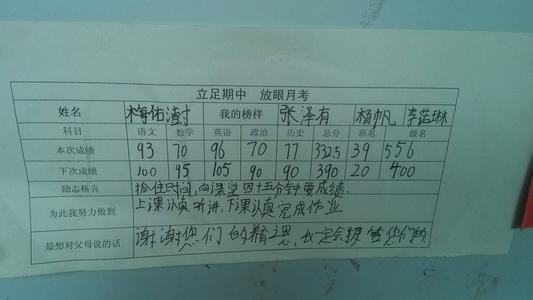 立足期中 放眼月考
姓名 梅佑澍 我的榜样 张泽有 杨帆 李芷琳
科目 语文 数学 英语 政治 历史 总分 班名 级名
本次成绩 93 70 96 70 77 332.5 39 556
下次成绩 100 95 105 90 90 390 20 400
励志格言 抓住时间,向课堂四十五分钟要成绩.
为此我努力做到 上课认真听讲,下课认真完成作业
最想对父母说的话 谢谢您们的 我一定会 您们的